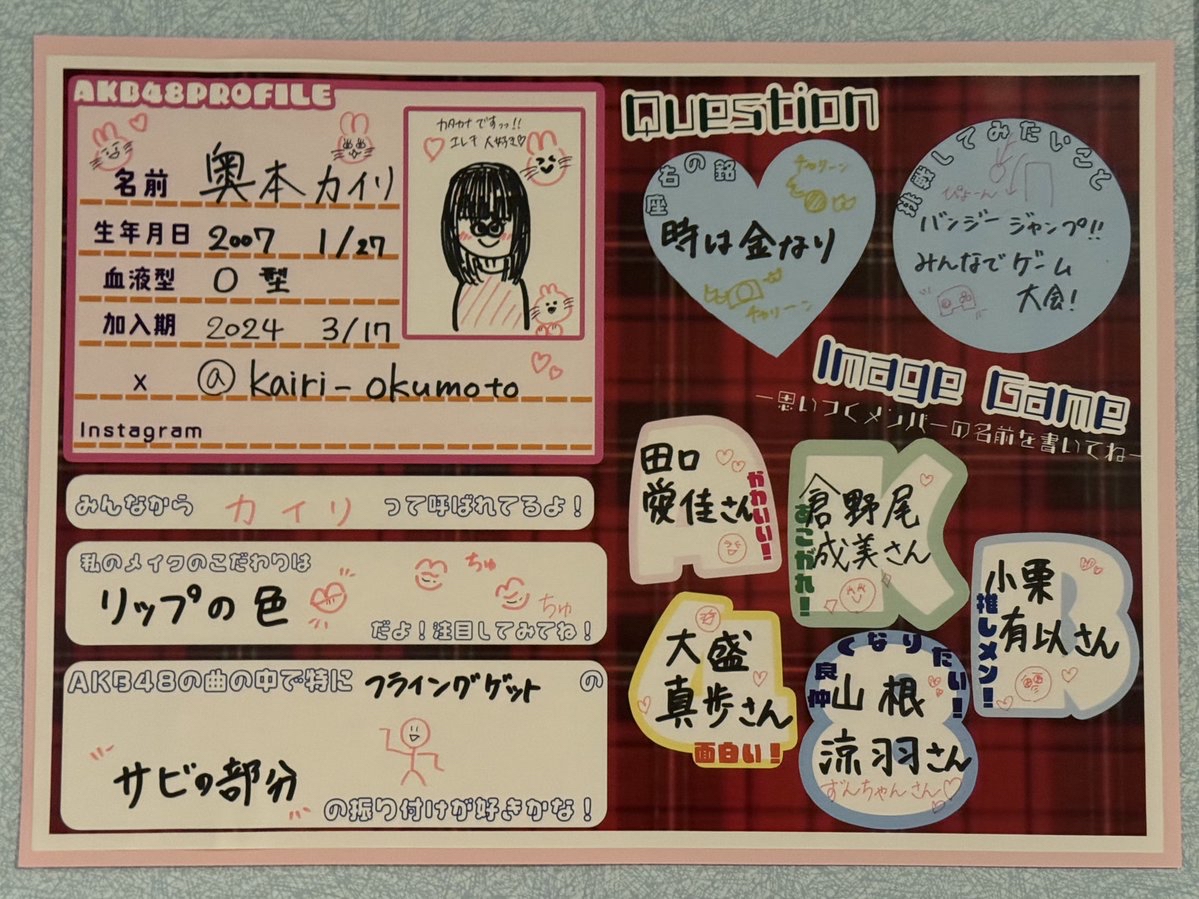 AKB48PROFILE
名前 奥本カイリ
生年月日 2007 1/27
血液型 O型
加入期 2024 3/17
X @kairi-okumoto
Instagram
カタカナですっ!!
エレキ大好き♡
みんなから カイリ って呼ばれてるよ!
私のメイクのこだわりは
リップの色
ちゅ
ちゅ
だよ!注目してみてね!
AKB48の曲の中で特に フライングゲット の
サビの部分
の振り付けが好きかな!
Question
座右の銘
チャリーン
時は金なり
チャリーン
挑戦してみたいこと
ぴょーん
バンジージャンプ!!
みんなでゲーム
大会!
Image Game
ー思いつくメンバーの名前を書いてねー
かわいい!
田口
愛佳さん
あこがれ!
倉野尾
成美さん
推しメン!
小栗
有以さん
大盛
真歩さん
面白い!
仲良くなりたい!
山根
涼羽さん
ずんちゃんさん♡